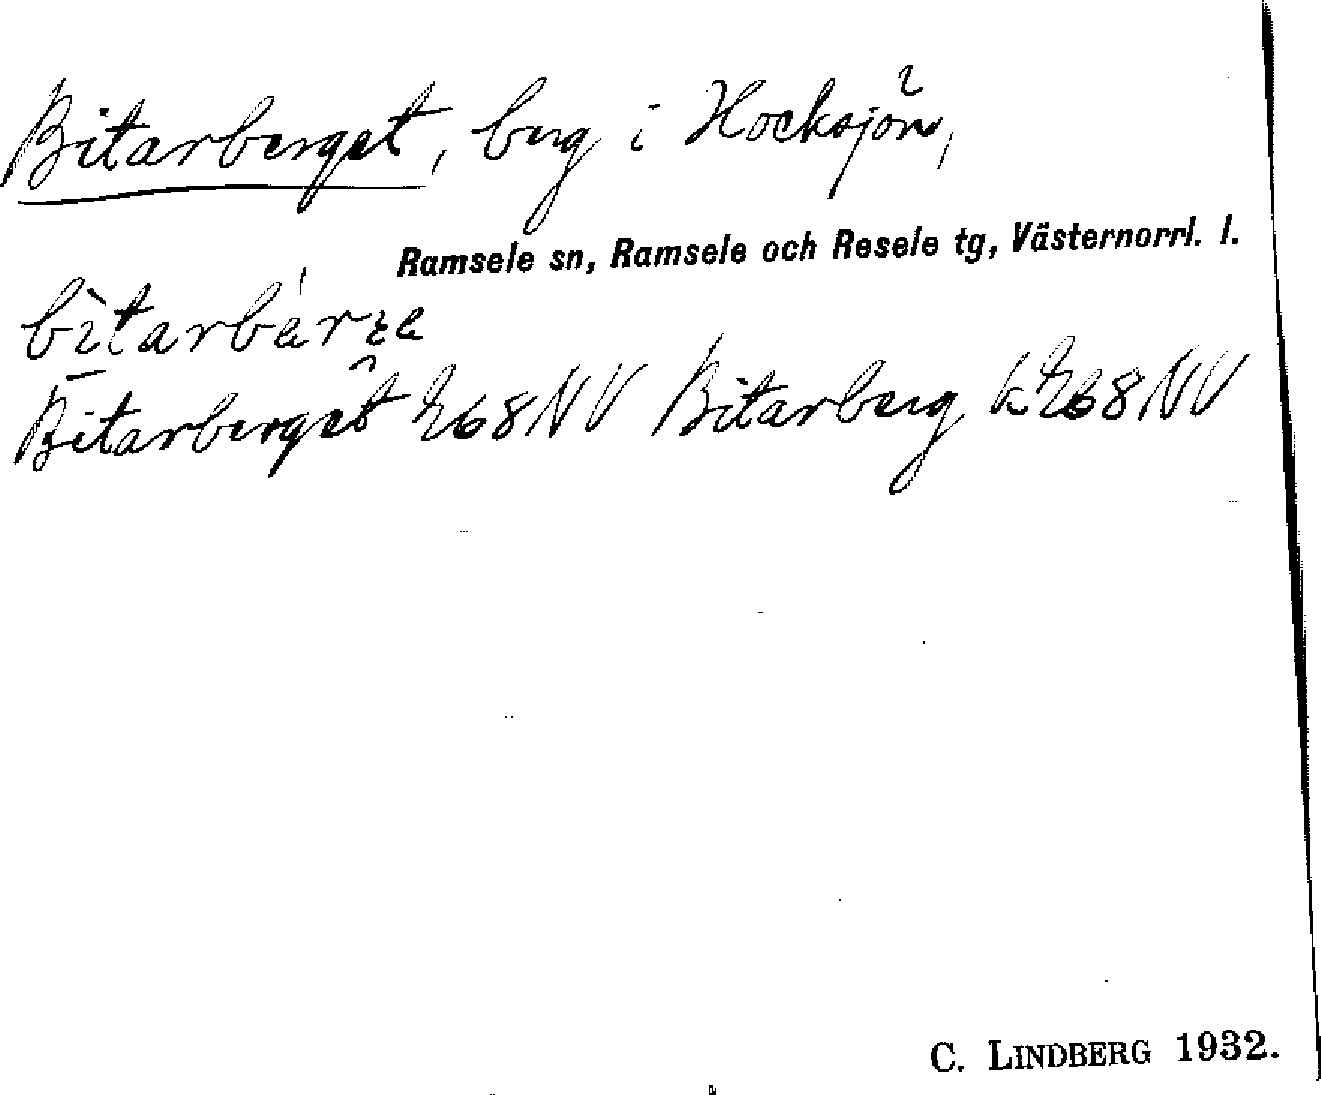 Bitarberget, berg i Hocksjön,
Ramsele sn, Ramsele och Resele tg, Västernorrl. l.
bitarbärje
Bitarberget E68NV Bitarberg LE68NV
C. LINDBERG 1932.